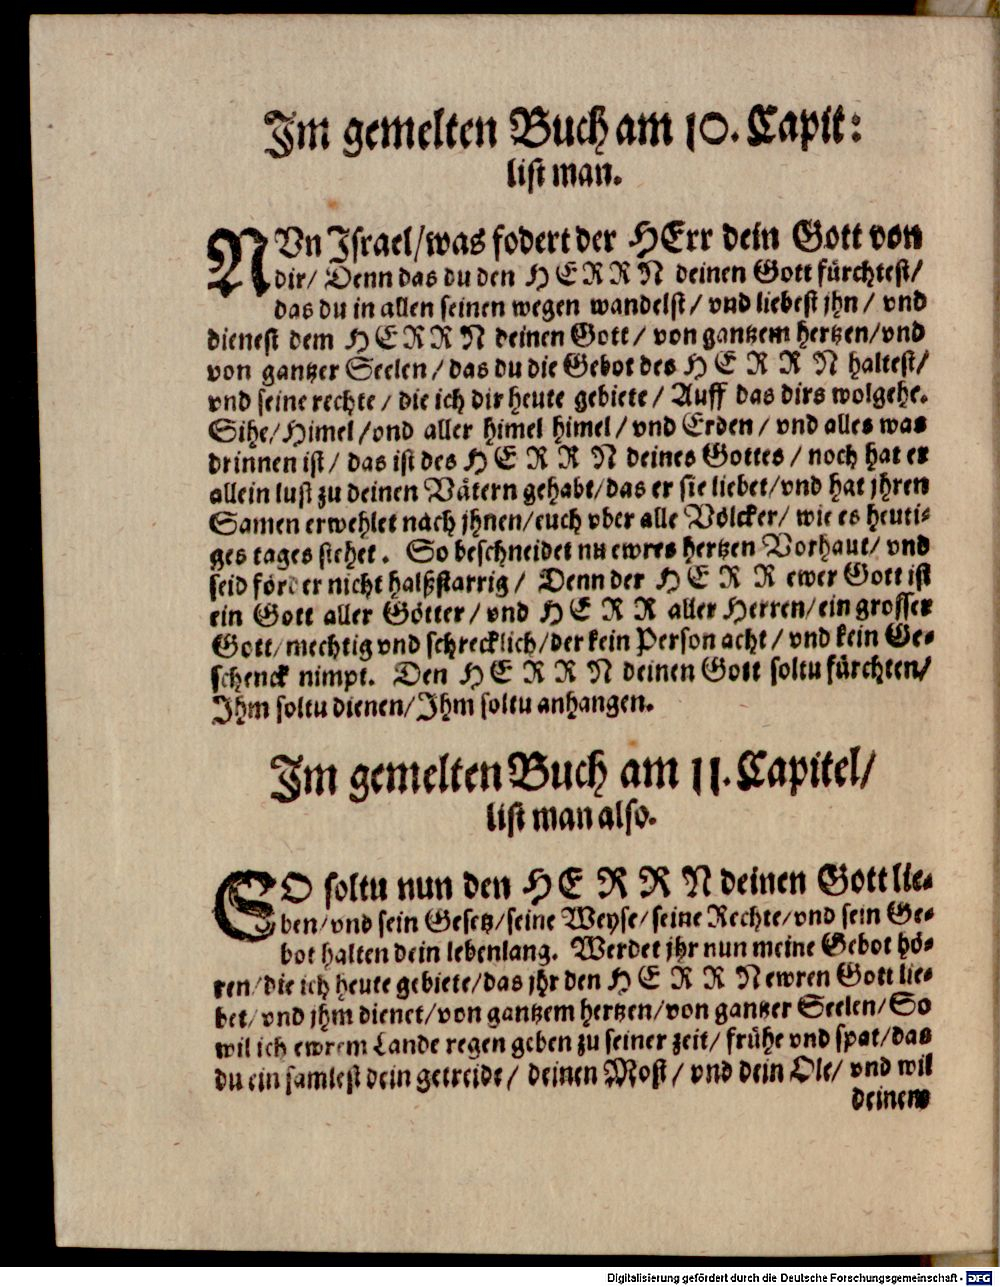 Im gemelten Buch am 10. Capit:
list man.
NVn Israel/was fodert der HErr dein Gott von
dir/ Denn das du den HERRN deinen Gott fürchtest/
das du in allen seinen wegen wandelst/ vnd liebest jhn/ vnd
dienest dem HERRN deinen Gott/ von gantzem hertzen/vnd
von gantzer Seelen/das du die Gebot des HERRN haltest/
vnd seine rechte/ die ich dir heute gebiete/ Auff das dirs wolgehe.
Sihe/Himel/vnd aller himel himel/vnd Erden/ vnd alles was
drinnen ist/ das ist des HERRN deines Gottes/noch hat er
allein lust zu deinen Vätern gehabt/das er sie liebet/vnd hat jhren
Samen erwehlet nach jhnen/euch vber alle Völcker/ wie es heuti-
ges tages stehet. So beschneidet nu ewres hertzen Vorhaut/ vnd
seid förder nicht halßstarrig/ Denn der HERR ewer Gott ist
ein Gott aller Götter/vnd HERR aller Herren/ein grosser
Gott/mechtig vnd schrecklich/der kein Person acht/ vnd kein Ge-
schenck nimpt. Den HERRN deinen Gott soltu fürchten/
Ihm soltu dienen/Ihm soltu anhangen.
Im gemelten Buch am 11. Capitel/
list man also.
SO soltu nun den HERRN deinen Gott lie-
ben/vnd sein Gesetz/seine Weyse/seine Rechte/vnd sein Ge-
bot halten dein lebenlang. Werdet jhr nun meine Gebot hö-
ren/die ich heute gebiete/das jhr den HERRN ewren Gott lie-
bet/vnd jhm dienet/von gantzem hertzen/von gantzer Seelen/So
wil ich ewrem Lande regen geben zu seiner zeit/ frühe vnd spat/das
du ein samlest dein getreide/ deinen Most/ vnd dein Ole/ vnd wil
deinem
Digitalisierung gefördert durch die Deutsche Forschungsgemeinschaft - DFG